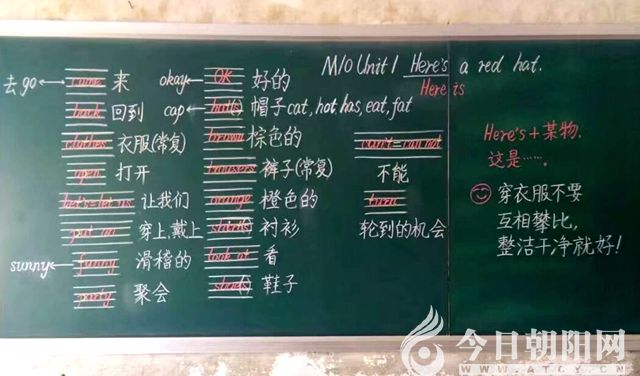 M10 Unit 1 Here's a red hat.
Here is
去 go ← come 来
back 回到
clothes 衣服(常复)
open 打开
Let's=let us 让我们
put on 穿上,戴上
sunny ← funny 滑稽的
party 聚会
okay ← OK 好的
cap ← hat(s) 帽子 cat, hot, has, eat, fat
brown 棕色的
trousers 裤子(常复)
orange 橙色的
shirt(s) 衬衫
look at 看
shoe(s) 鞋子
can't = can not
不能
turn
轮到的机会
Here's+某物.
这是……
穿衣服不要
互相攀比,
整洁干净就好!
今日朝阳网
WWW.ATCY.CN